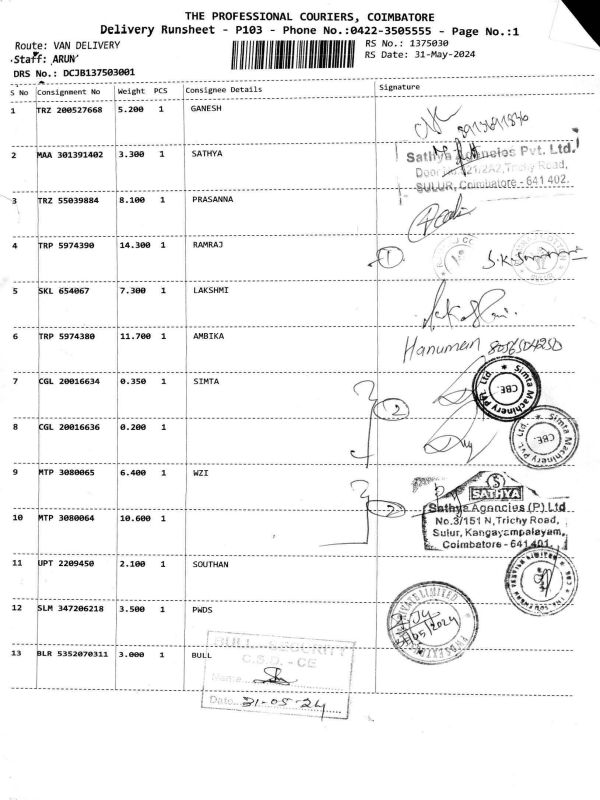 THE PROFESSIONAL COURIERS, COIMBATORE
Delivery Runsheet - P103 - Phone No.:0422-3505555 - Page No.:1
Route: VAN DELIVERY
RS No.: 1375030
Staff: ARUN
RS Date: 31-May-2024
DRS No.: DCJB137503001
S No Consignment No Weight PCS Consignee Details Signature
1 TRZ 200527668 5.200 1 GANESH
2 MAA 301391402 3.300 1 SATHYA
Sathya Agencies Pvt. Ltd.
Trichy Road,
SULUR, Coimbatore - 641 402.
3 TRZ 55039884 8.100 1 PRASANNA
4 TRP 5974390 14.300 1 RAMRAJ
1
5 SKL 654067 7.300 1 LAKSHMI
6 TRP 5974380 11.700 1 AMBIKA
Hanuman 8056504250
7 CGL 20016634 0.350 1 SIMTA
2
Simta Machinery Pvt. Ltd.
CBE.
8 CGL 20016636 0.200 1
Simta Machinery Pvt. Ltd.
CBE.
9 MTP 3080065 6.400 1 WZI
SATHYA
Sathya Agencies (P) Ltd
2
No.3/151 N, Trichy Road,
Sulur, Kangayampalayam,
Coimbatore - 641401.
10 MTP 3080064 10.600 1
11 UPT 2209450 2.100 1 SOUTHAN
12 SLM 347206218 3.500 1 PWDS
PRIVATE LIMITED
05/2024
13 BLR 5352070311 3.000 1 BULL
BULL - SECURITY
C.S.D. - CE
Name
Date 31-05-24